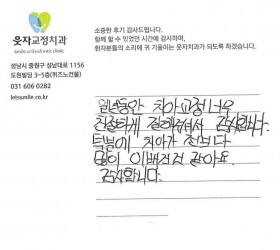 웃자교정치과
Smile orthodontic clinic
성남시 중원구 성남대로 1156
도원빌딩 3~5층(위즈노건물)
031 606 0282
letssmile.co.kr
소중한 후기 감사드립니다.
함께 할 수 있었던 시간에 감사하며,
환자분들의 소리에 귀 기울이는 웃자치과가 되도록 하겠습니다.
일년동안 치아교정
친절하게 잘해주셔서 감사합니다.
덕분에 치아가 전보다
많이 이뻐진것 같아요.
감사합니다.